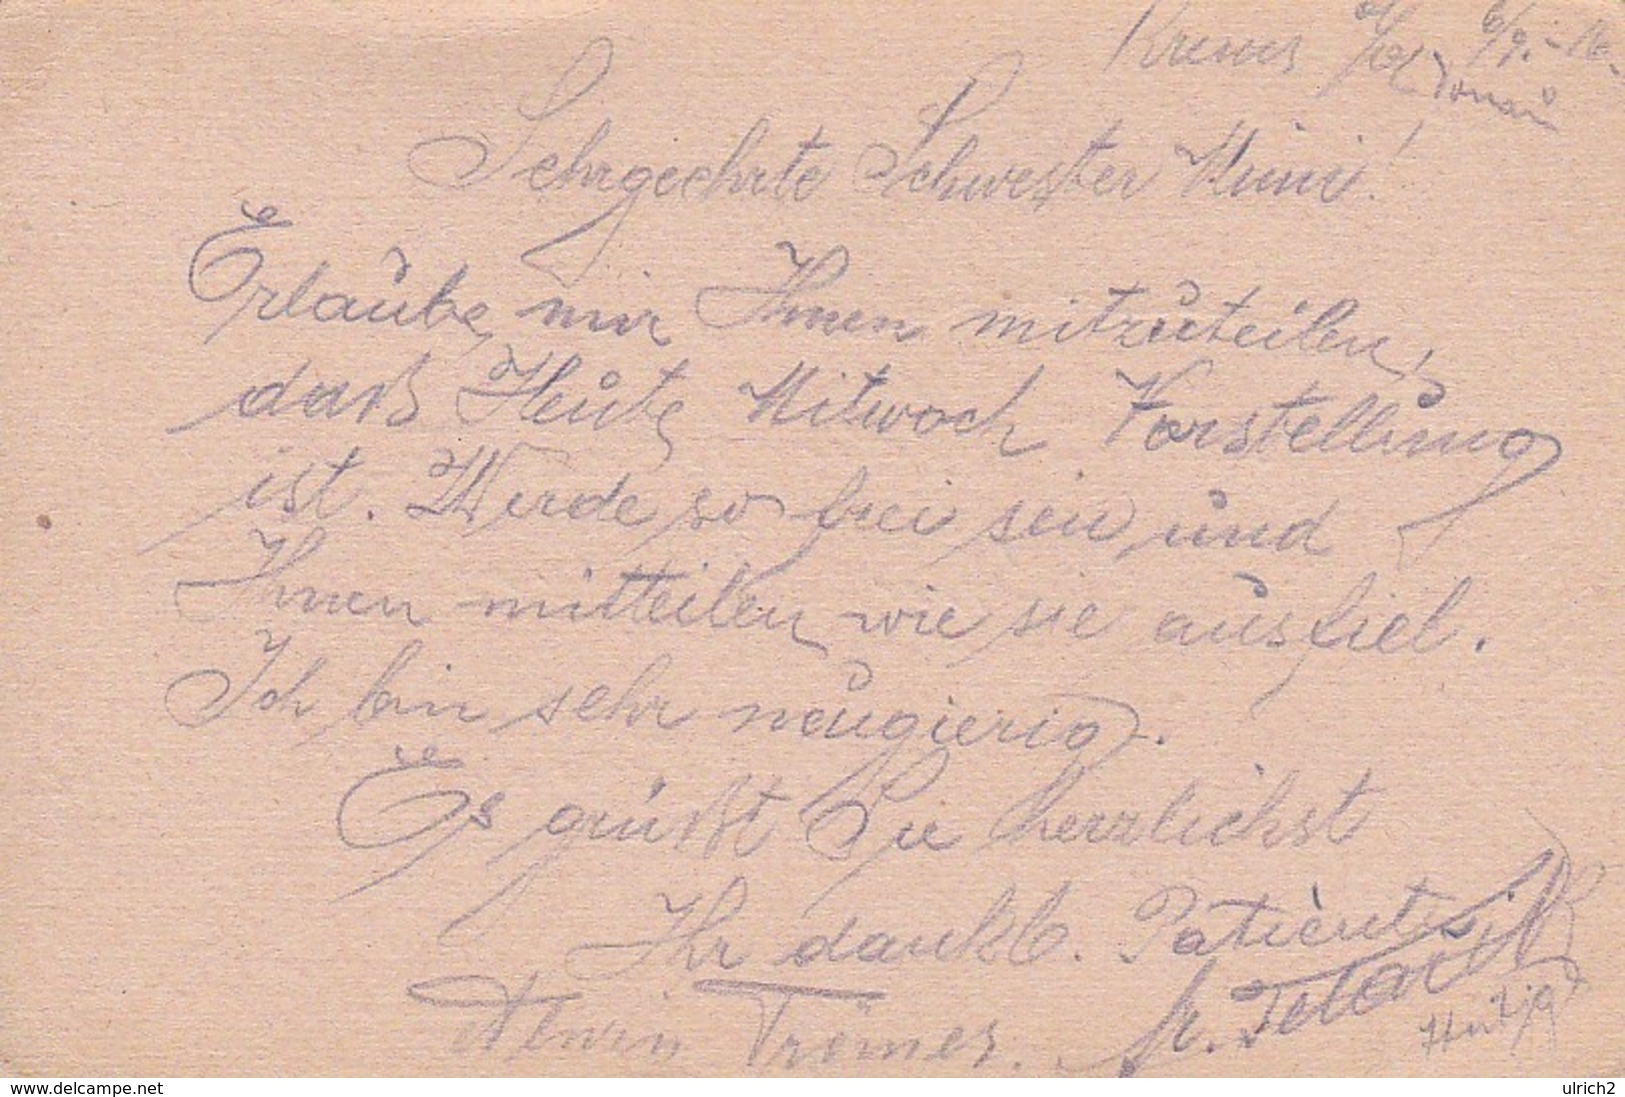 Krems a/d Donau 6/9.-16.
Sehrgeehrte Schwester Mimi!
Erlaube mir Ihnen mitzuteilen,
daß Heute Mitwoch Vorstellung
ist. Werde so frei sein und
Ihnen mitteilen wie sie ausfiel.
Ich bin sehr neugierig.
Es grüßt Sie herzlichst
Ihr dankb. Patient
www.delcampe.net
ulrich2